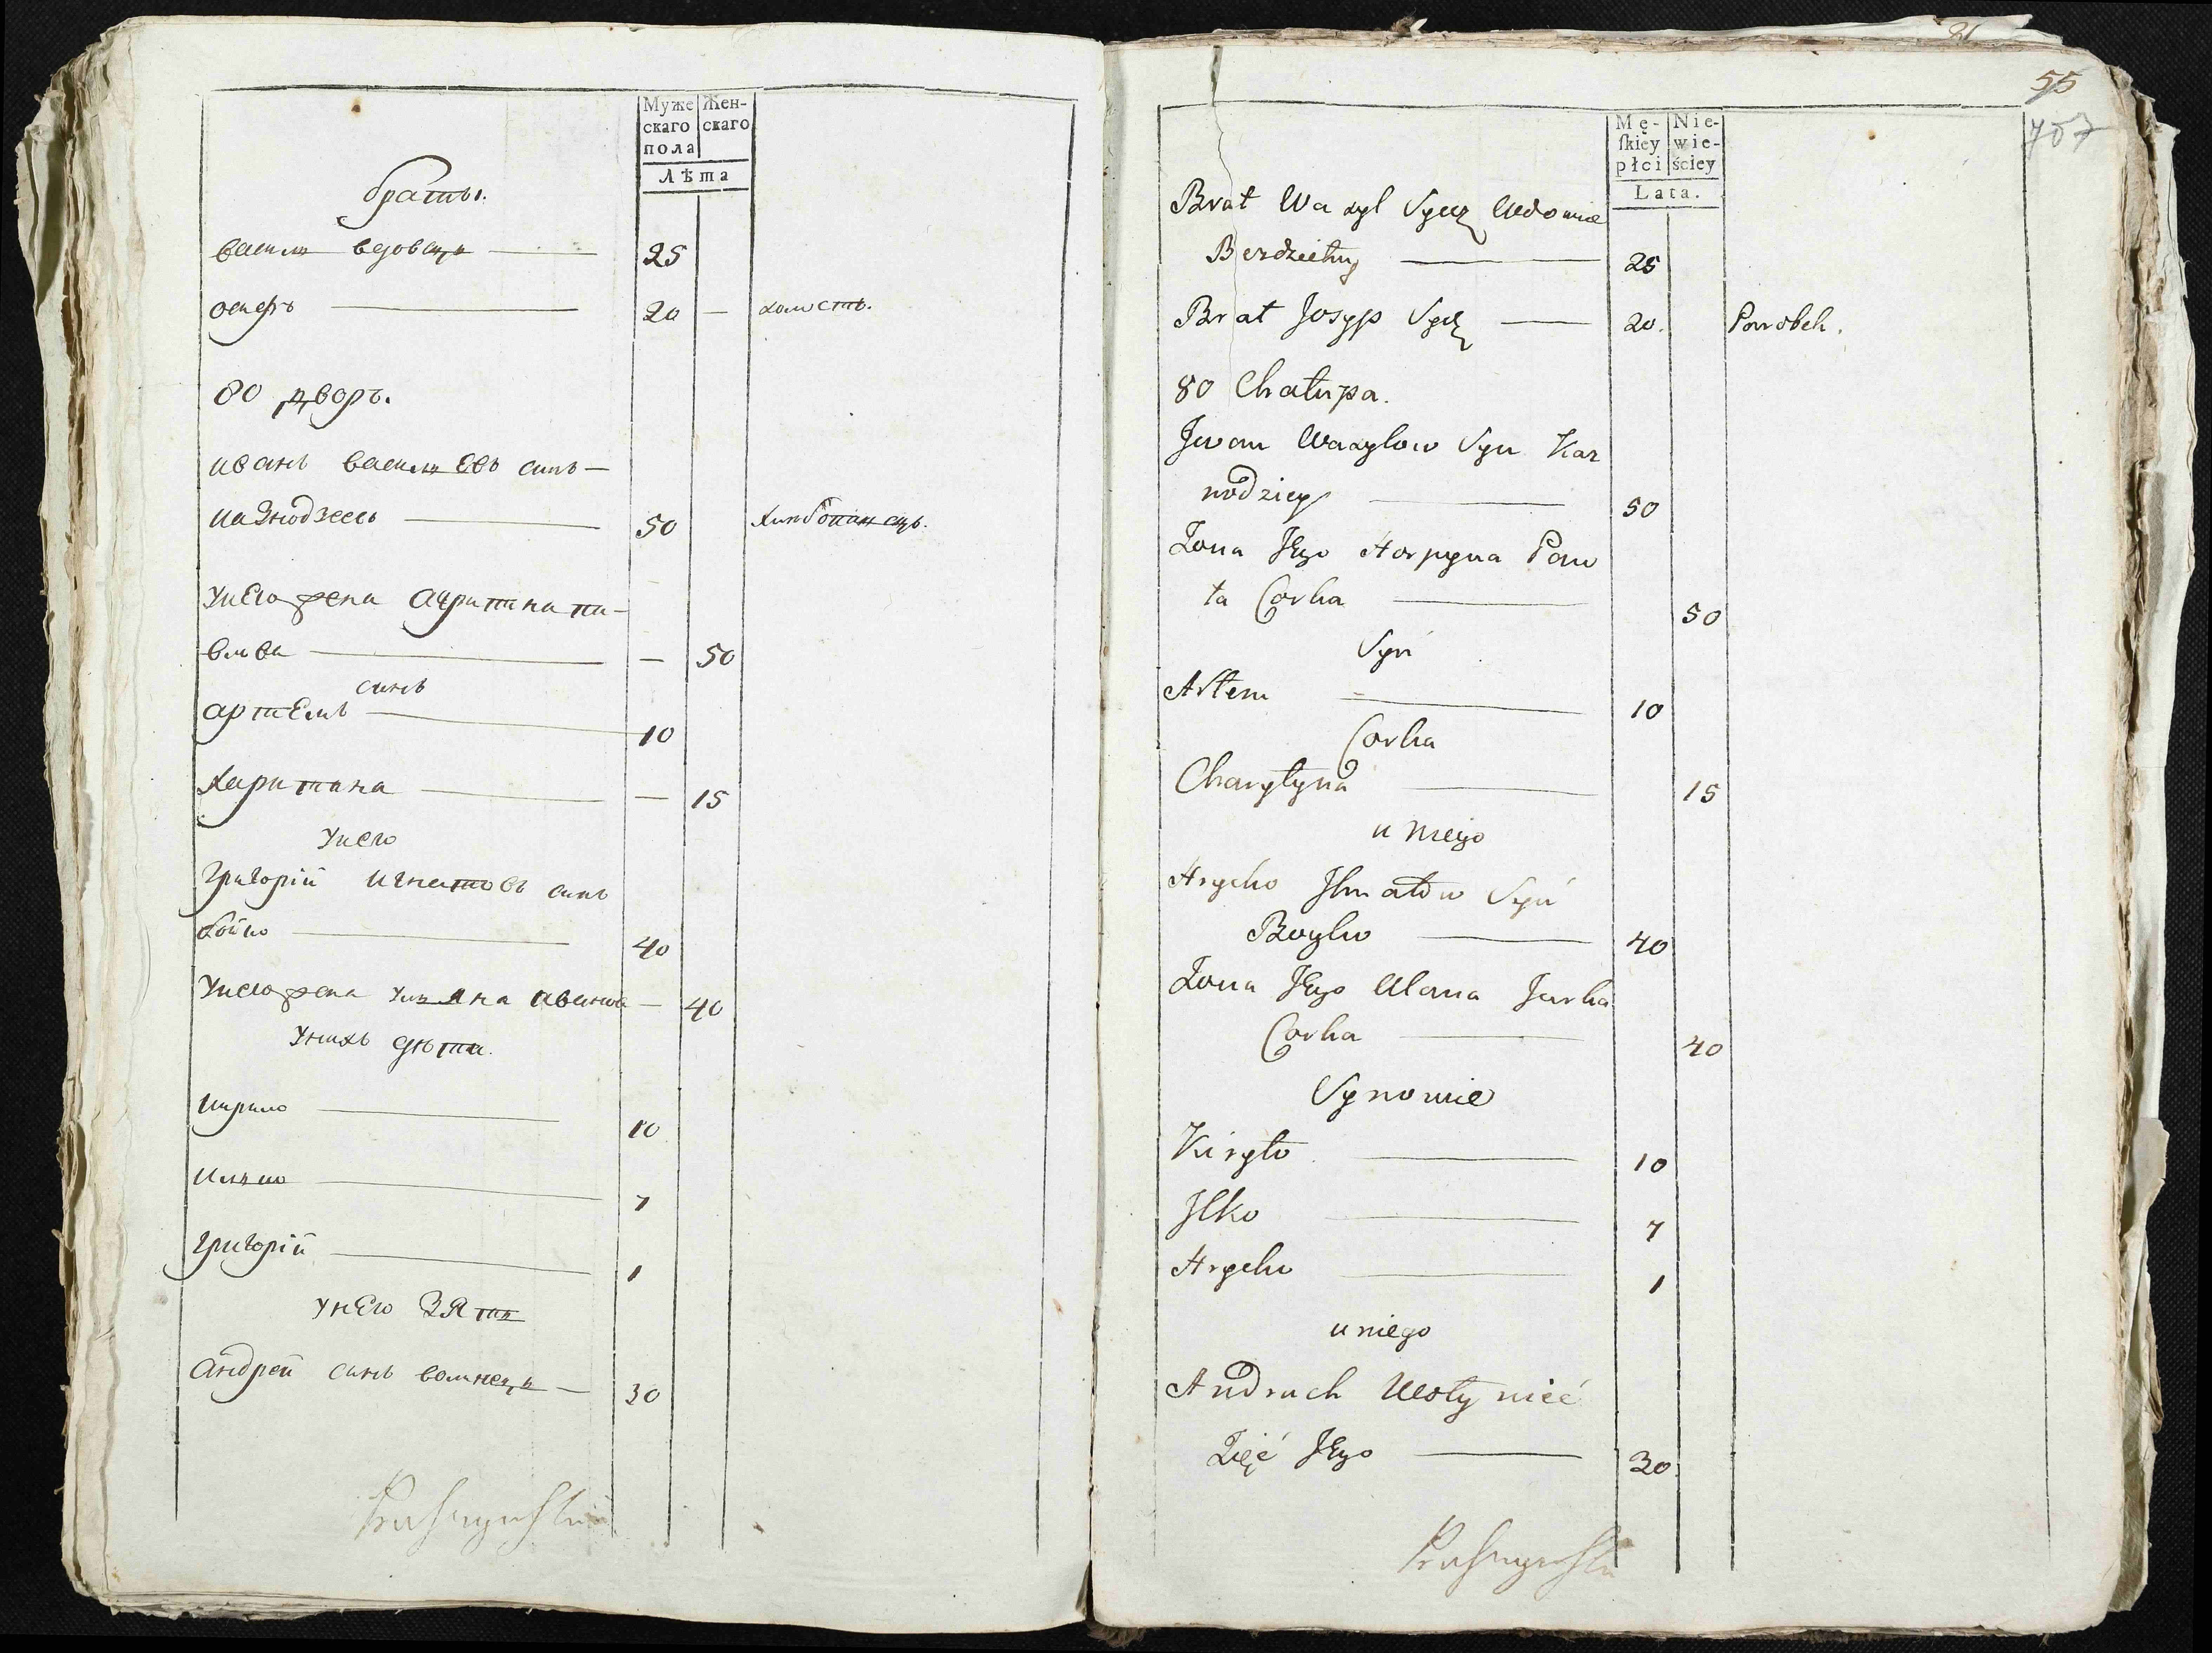 Муже
скаго
пола
Жен-
скаго
Лѣта
браты.
василь вдовецъ 25
осифъ 20 — холостъ.
80 дворъ.
иванъ василь Евъ синъ —
50 хлѣбопашецъ.
унего жена агрипина па-
влва — 50
синъ
артЕмъ 10
харитина — 15
унего
григорій игнатовъ синъ
бойко 40
унего жена уляна — 40
унихъ дѣти.
кирило 10
илько 7
григорій 1
унЕго ЗЯть
андрей синъ — 30
55
707
Mę-
ſkiey
płci
Nie-
wie-
ściey
Lata.
Brat Wasyl Wdowiec
25
Brat Josyp 20. Parobek.
80 Chałupa.
Jwan Wasylow Syn Kaz
nodziey 50
Żona Jego Horpyna Paw
ła Corka 50
Syn
Artem 10
Corka
Charytyna 15
u niego
Hryćko Jhnatow Syn
Boyko 40
Żona Jego Ulana Jurka
Corka 40
Synowie
Kiryło 10
Jlko 7
Hryćko 1
u niego
Andruch Wołyniec
Zięć Jego 30